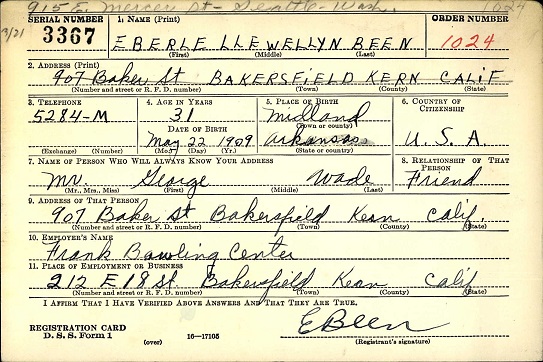 915 E. Mercer St - Seattle - Wash. 1024
3/21
SERIAL NUMBER 1. NAME (Print) ORDER NUMBER
3367 EBERLE LLEWELLYN BEEN 1024
(First) (Middle) (Last)
2. ADDRESS (Print)
907 Baker St BAKERSFIELD KERN CALIF
(Number and street or R. F. D. number) (Town) (County) (State)
3. TELEPHONE 4. AGE IN YEARS 5. PLACE OF BIRTH 6. COUNTRY OF CITIZENSHIP
5284-M 31 Midland
DATE OF BIRTH (Town or county)
May 22 1909 Arkansas U. S. A.
(Exchange) (Number) (Mo.) (Day) (Yr.) (State or country)
7. NAME OF PERSON WHO WILL ALWAYS KNOW YOUR ADDRESS 8. RELATIONSHIP OF THAT PERSON
Mr. George Wade Friend
(Mr., Mrs., Miss) (First) (Middle) (Last)
9. ADDRESS OF THAT PERSON
907 Baker St Bakersfield Kern Calif.
(Number and street or R. F. D. number) (Town) (County) (State)
10. EMPLOYER'S NAME
Frank Bowling Center
11. PLACE OF EMPLOYMENT OR BUSINESS
212 E 18 St. Bakersfield Kern Calif
(Number and street or R. F. D. number) (Town) (County) (State)
I AFFIRM THAT I HAVE VERIFIED ABOVE ANSWERS AND THAT THEY ARE TRUE.
REGISTRATION CARD E Been
D. S. S. Form 1 16—17105 (Registrant's signature)
(over)